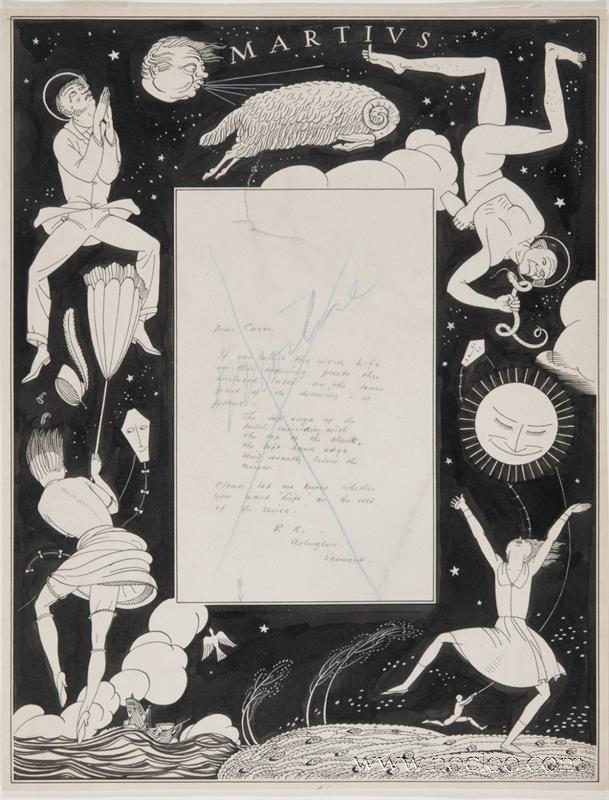 MARTIVS
Dear Casey
If you follow the word Life
on this drawing paste the
enclosed label on the lower
part of the drawing - as
follows -
The top edge of the
label coinciding with
the top of the black,
the left hand edge
being exactly below the
Please let me know whether
you want "Life" on the rest
of the series.
R. K.
Arlington
Vermont.
www.nocloo.com